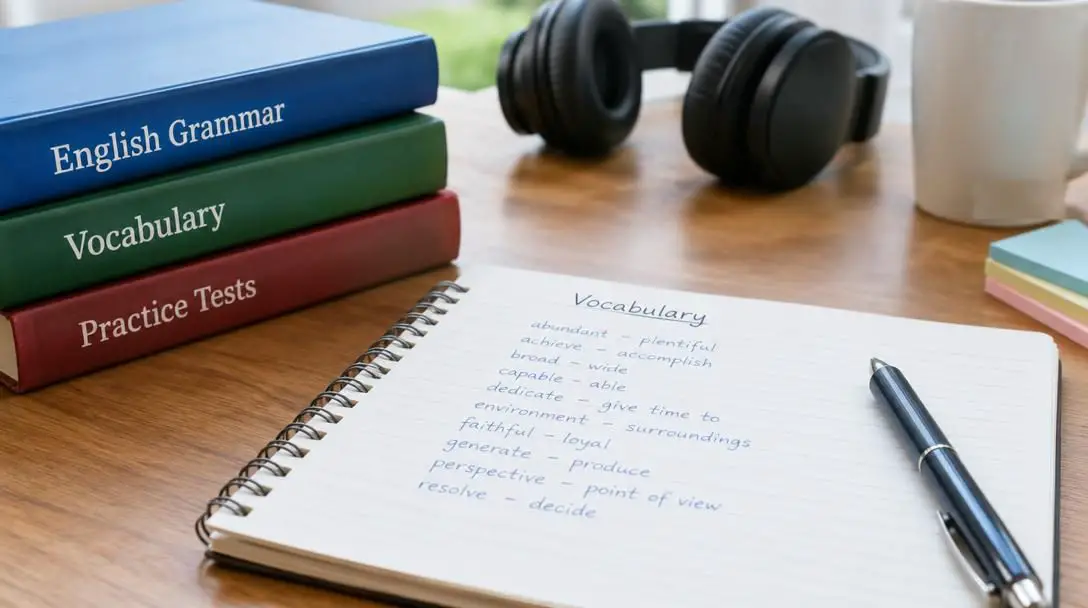 English Grammar
Vocabulary
Practice Tests
Vocabulary
abundant – plentiful
achieve – accomplish
broad – wide
capable – able
dedicate – give time to
environment – surroundings
faithful – loyal
generate – produce
perspective – point of view
resolve – decide